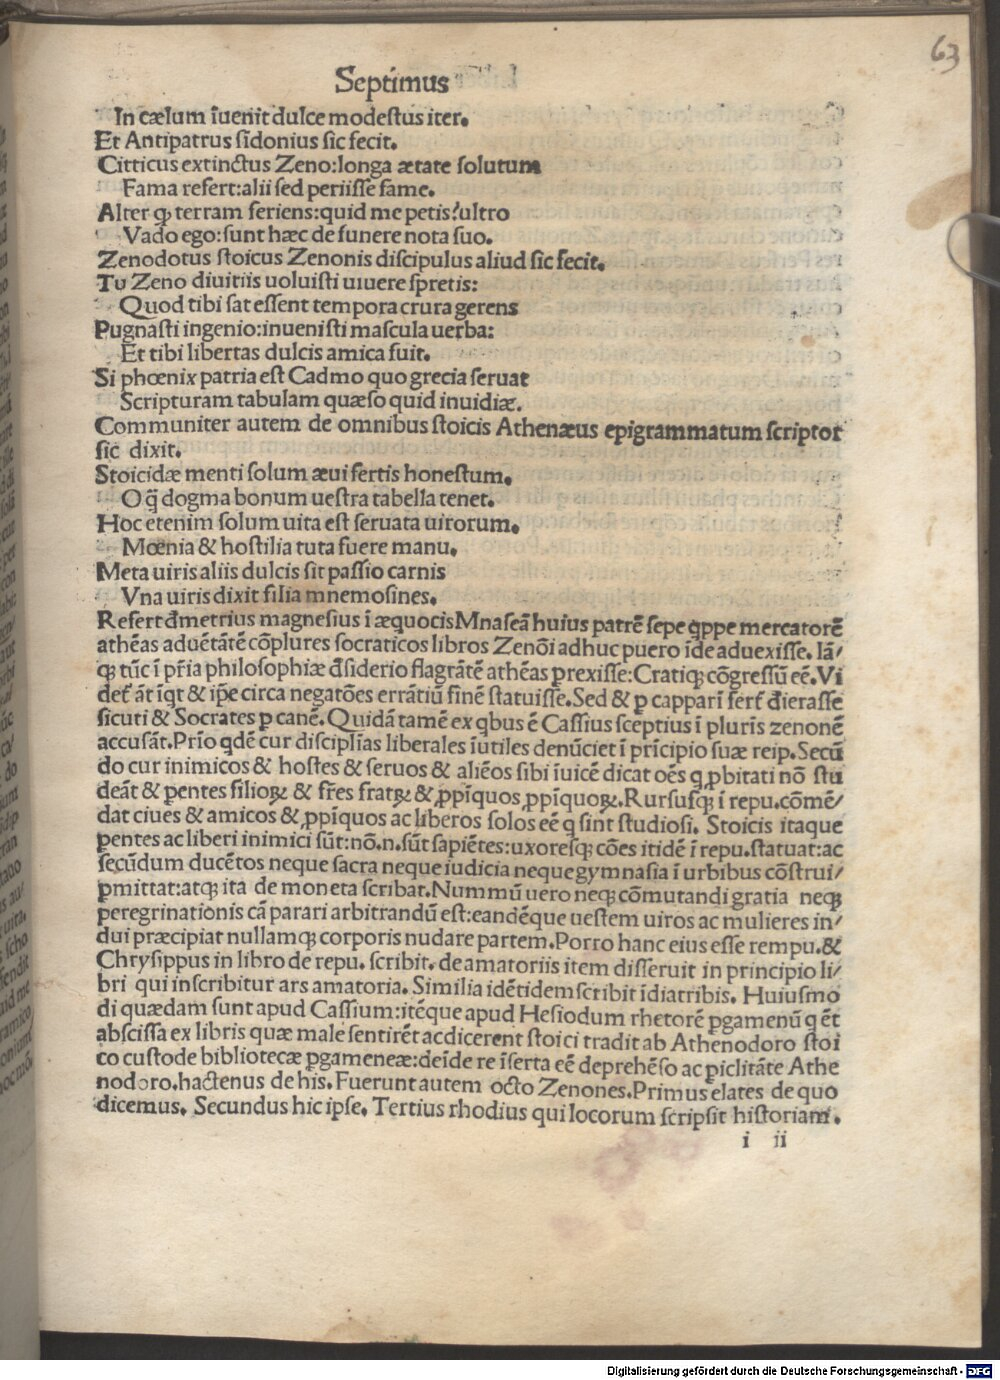 63
Septimus
In cælum īuenit dulce modestus iter.
Et Antipatrus sidonius sic fecit.
Citticus extinctus Zeno: longa ætate solutum
Fama refert: alii sed periisse fame.
Alter ꝙ terram feriens: quid me petis? ultro
Vado ego: sunt hæc de funere nota suo.
Zenodotus stoicus Zenonis discipulus aliud sic fecit.
Tu Zeno diuitiis uoluisti uiuere spretis:
Quod tibi sat essent tempora crura gerens
Pugnasti ingenio: inuenisti mascula uerba:
Et tibi libertas dulcis amica fuit.
Si phœnix patria est Cadmo quo grecia seruat
Scripturam tabulam quæso quid inuidiæ.
Communiter autem de omnibus stoicis Athenæus epigrammatum scriptor
sic dixit.
Stoicidæ menti solum æui fertis honestum.
O q̄ dogma bonum uestra tabella tenet.
Hoc etenim solum uita est seruata uirorum.
Mœnia & hostilia tuta fuere manu.
Meta uiris aliis dulcis sit passio carnis
Vna uiris dixit filia mnemosines.
Refert đmetrius magnesius ī æquocis Mnaseā huius patrē sepe q̄ppe mercatorē
athēas aduētātē cōplures socraticos libros Zenōi adhuc puero īde aduexisse. Iā/
qꝫ tūc ī pr̄ia philosophiæ đsiderio flagrātē athēas prexisse: Cratiqꝫ cōgressū eē. Vi
det̄ āt īqt & ip̄e circa negatōes errātiū finē statuisse. Sed & ꝑ cappari fert̄ đierasse
sicuti & Socrates ꝑ canē. Quidā tamē ex qbus ē Cassius sceptius ī pluris zenonē
accusāt. Prīo qdē cur disciplīas liberales īutiles denūciet ī prīcipio suæ reip. Secū
do cur inimicos & hostes & seruos & aliēos sibi īuicē dicat oēs q ꝓbitati nō stu
deāt & ꝑentes filioꝝ & fr̄es fratꝝ & ꝓpīquos ꝓpīquoꝝ. Rursusqꝫ ī repu. cōmē/
dat ciues & amicos & ꝓpīquos ac liberos solos eē q sint studiosi. Stoicis itaque
ꝑentes ac liberi inimici sūt: nō.n. sūt sapiētes: uxoresqꝫ cōes itidē ī repu. statuat: ac
secūdum ducētos neque sacra neque iudicia neque gymnasia ī urbibus cōstrui/
ꝑmittat: atqꝫ ita de moneta scribat. Nummū uero neqꝫ cōmutandi gratia neqꝫ
peregrinationis cā parari arbitrandū est: eandēque uestem uiros ac mulieres in/
dui præcipiat nullamqꝫ corporis nudare partem. Porro hanc eius esse rempu. &
Chrysippus in libro de repu. scribit. de amatoriis item disseruit in principio li/
bri qui inscribitur ars amatoria. Similia idētidem scribit ī diatribis. Huiusmo
di quædam sunt apud Cassium: itēque apud Hesiodum rhetorē ꝑgamenū q ēt
abscissa ex libris quæ male sentirēt ac dicerent stoici tradit ab Athenodoro stoi
co custode bibliotecæ ꝑgameneæ: deīde re īserta eē deprehēso ac ꝑiclitāte Athe
nodoro. hactenus de his. Fuerunt autem octo Zenones. Primus elates de quo
dicemus. Secundus hic ipse. Tertius rhodius qui locorum scripsit historiam.
i ii
Digitalisierung gefördert durch die Deutsche Forschungsgemeinschaft - DFG